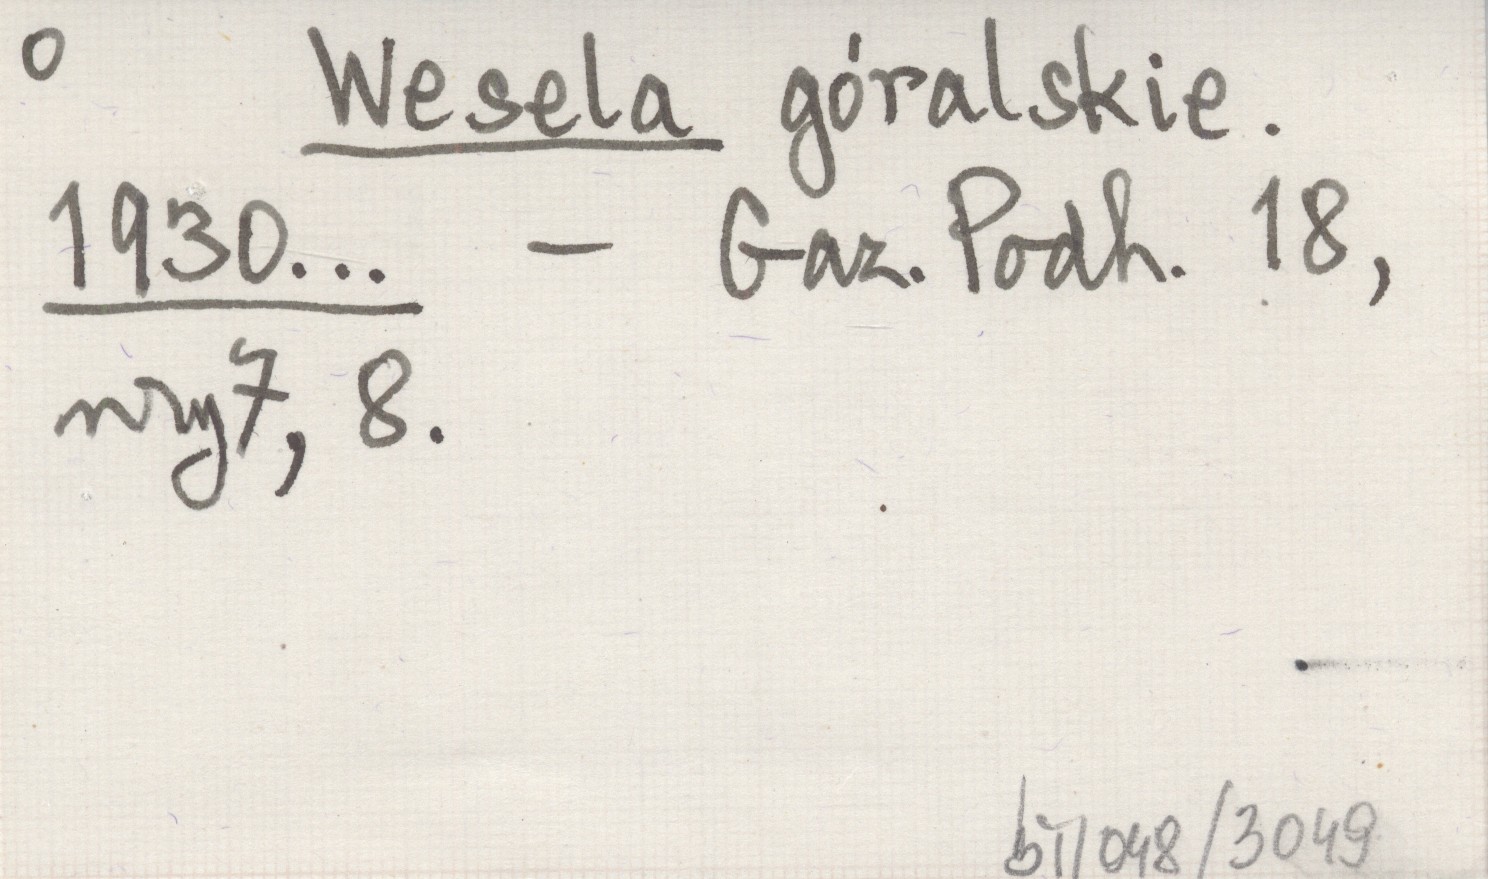 o Wesela góralskie.
1930... – Gaz. Podh. 18,
nry 7, 8.
bT/048/3049